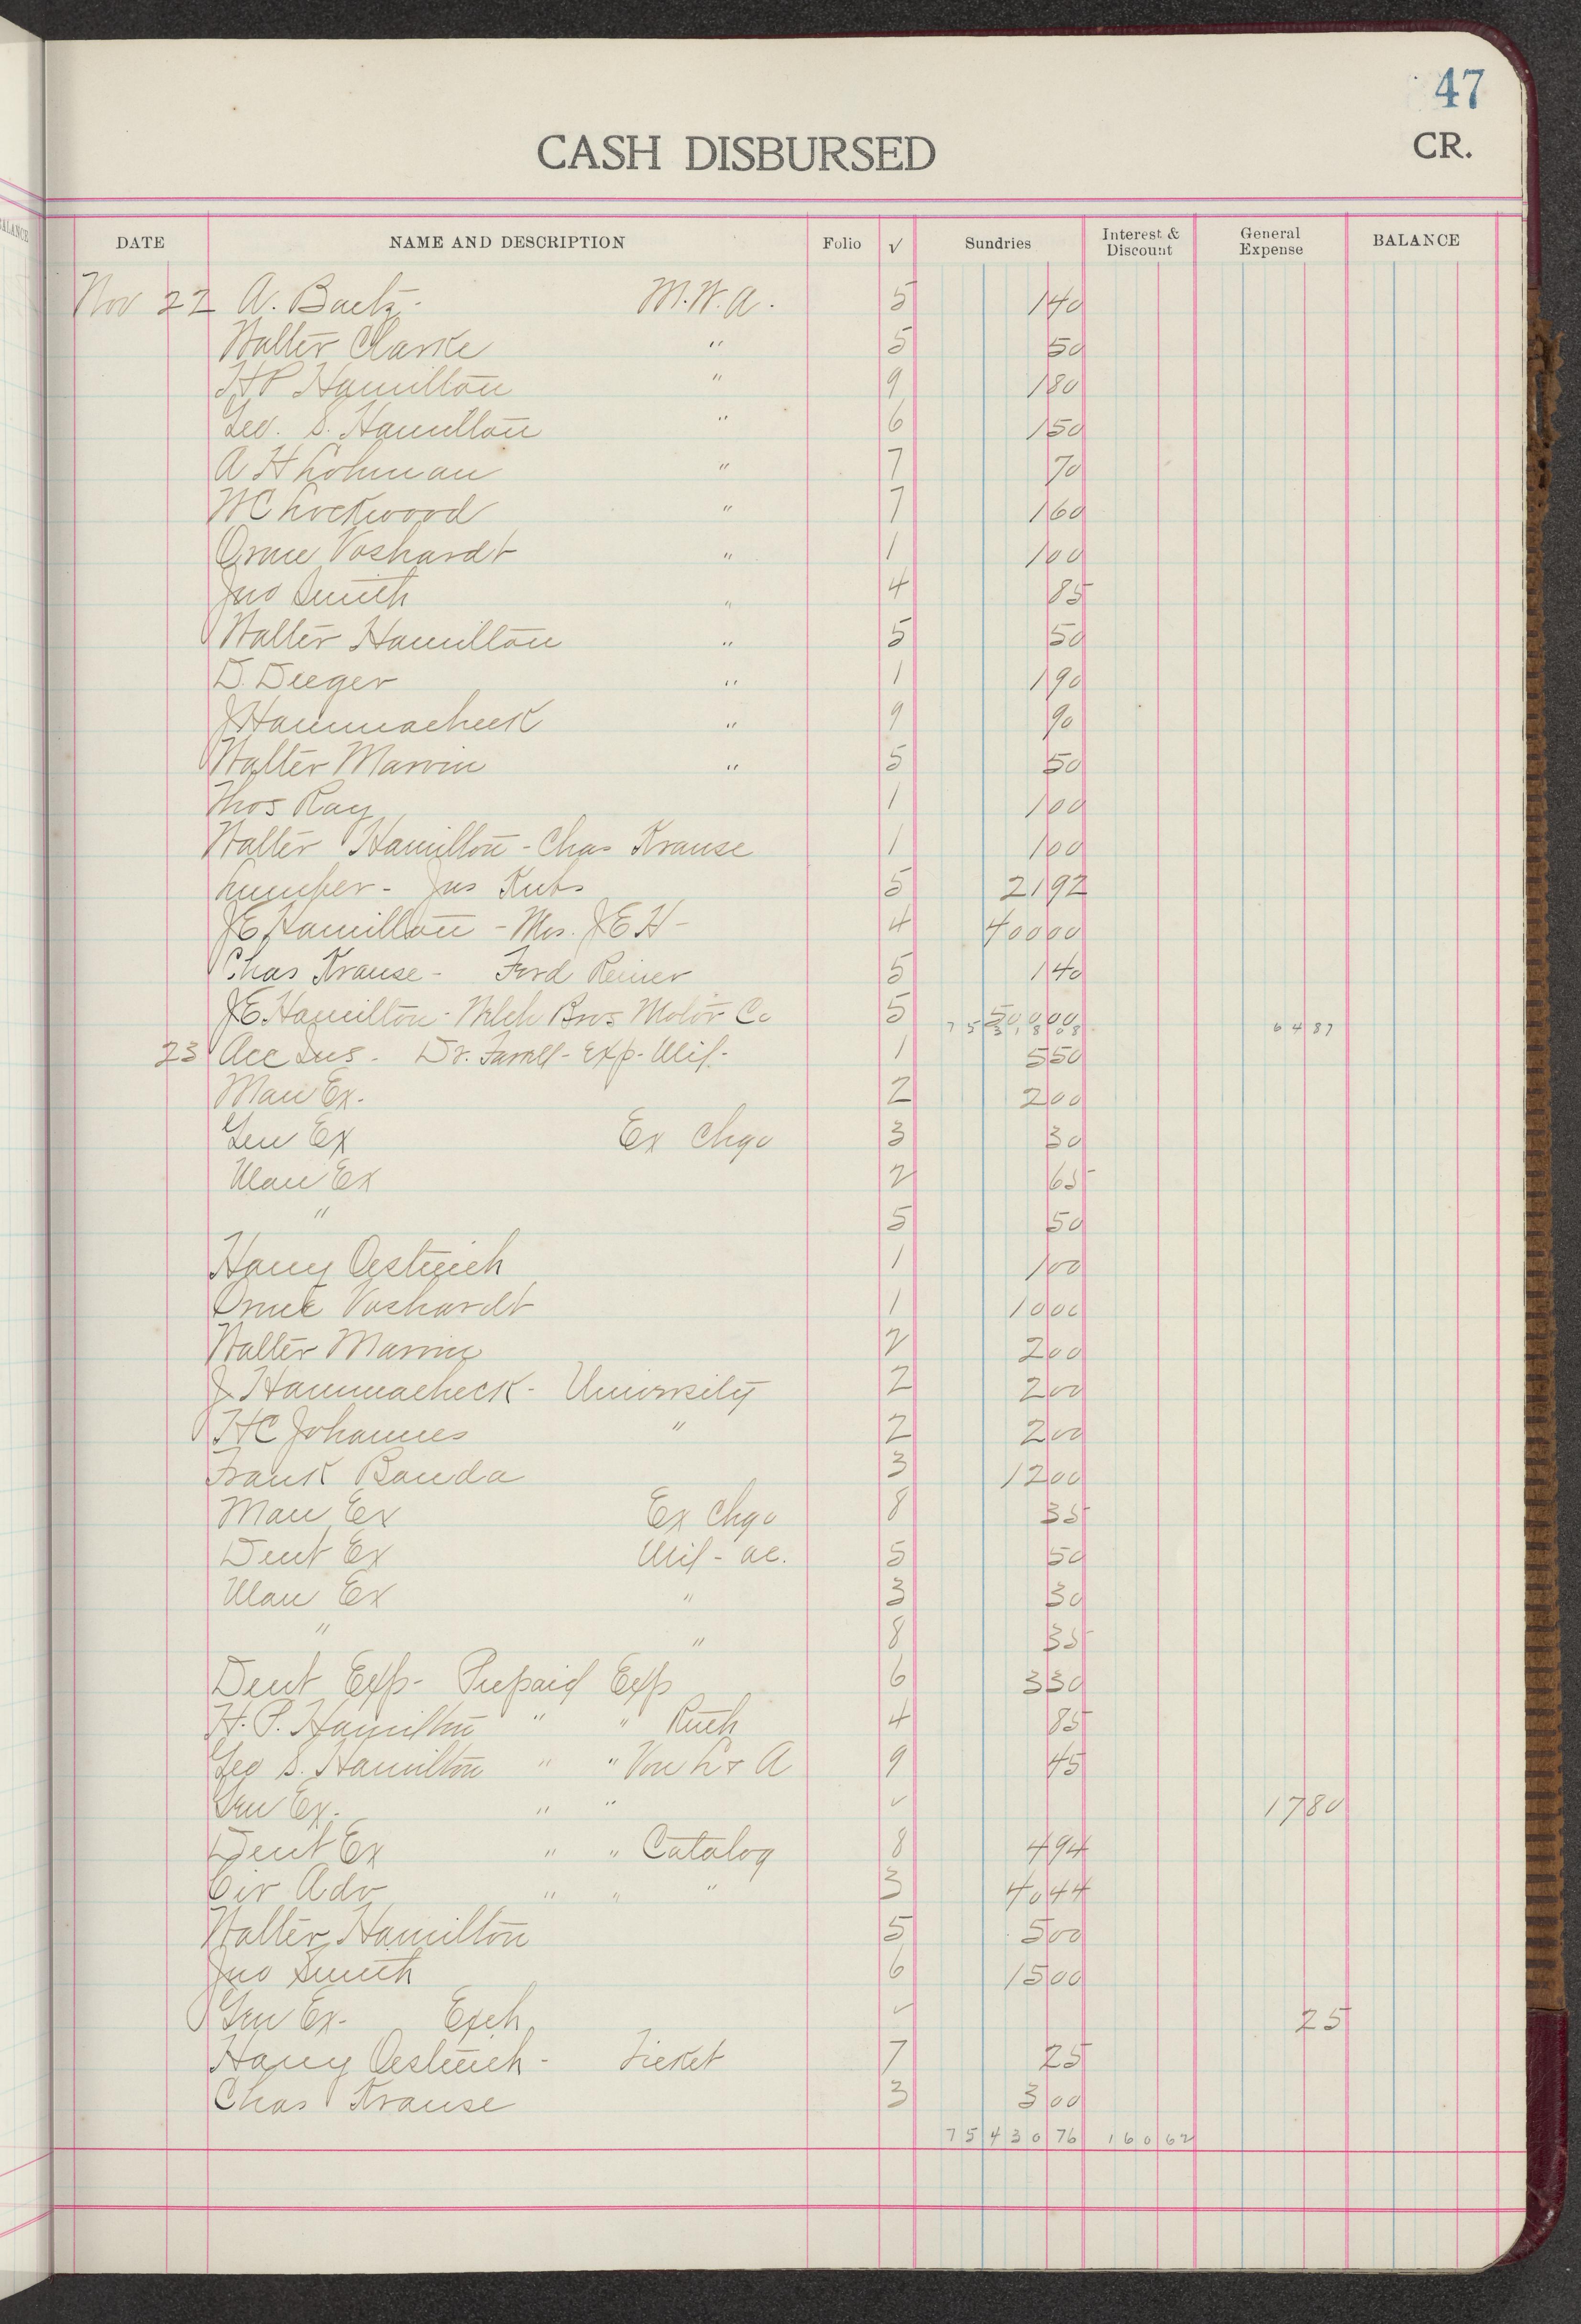 47
CASH DISBURSED CR.
DATE NAME AND DESCRIPTION Folio √ Sundries Interest & Discount General Expense BALANCE
Nov 22 A. Baetz - M.W.A. 5 1 40
Walter Clarke " 5 50
H P Hamilton " 9 1 80
Geo. S. Hamilton " 6 1 50
A H Lohman " 7 70
W C Lockwood " 7 1 60
Orme Voshardt " 1 1 00
Jno Smith " 4 85
Walter Hamilton " 5 50
D. Deeger " 1 1 90
J Hammacheck " 9 90
Walter Marvin " 5 50
Thos Ray 1 1 00
Walter Hamilton - Chas Krause 1 1 00
Lumber - Jas Kubs 5 21 92
J E Hamilton - Mrs. J E H - 4 400 00
Chas Krause - Ferd Reiner 5 1 40
J E Hamilton - Welch Bros Motor Co 5 500 00
75 318 08 64 87
23 Acc Ins. Dr. Farrell - Exp - Mil. 1 5 50
Man Ex. 2 2 00
Gen Ex Ex Chgo 3 30
Man Ex 2 65
" 5 50
Harry Oestreich 1 1 00
Orme Voshardt 1 10 00
Walter Marvin 2 2 00
J Hammacheck - University 2 2 00
H C Johannes " 2 2 00
Frank Banda 3 12 00
Man Ex Ex Chgo 8 35
Dent Ex Mil - ac. 5 50
Man Ex " 3 30
" " 8 35
Dent Exp - Prepaid Exp 6 3 30
H. P. Hamilton " " Ruth 4 85
Geo S. Hamilton " " Von L & A 9 45
Gen Ex. " " ✓ 17 80
Dent Ex " " Catalog 8 4 94
Cir Adv " " " 3 40 44
Walter Hamilton 5 5 00
Jno Smith 6 15 00
Gen Ex - Exch ✓ 25
Harry Oestreich - Ticket 7 25
Chas Krause 3 3 00
75 430 76 160 62